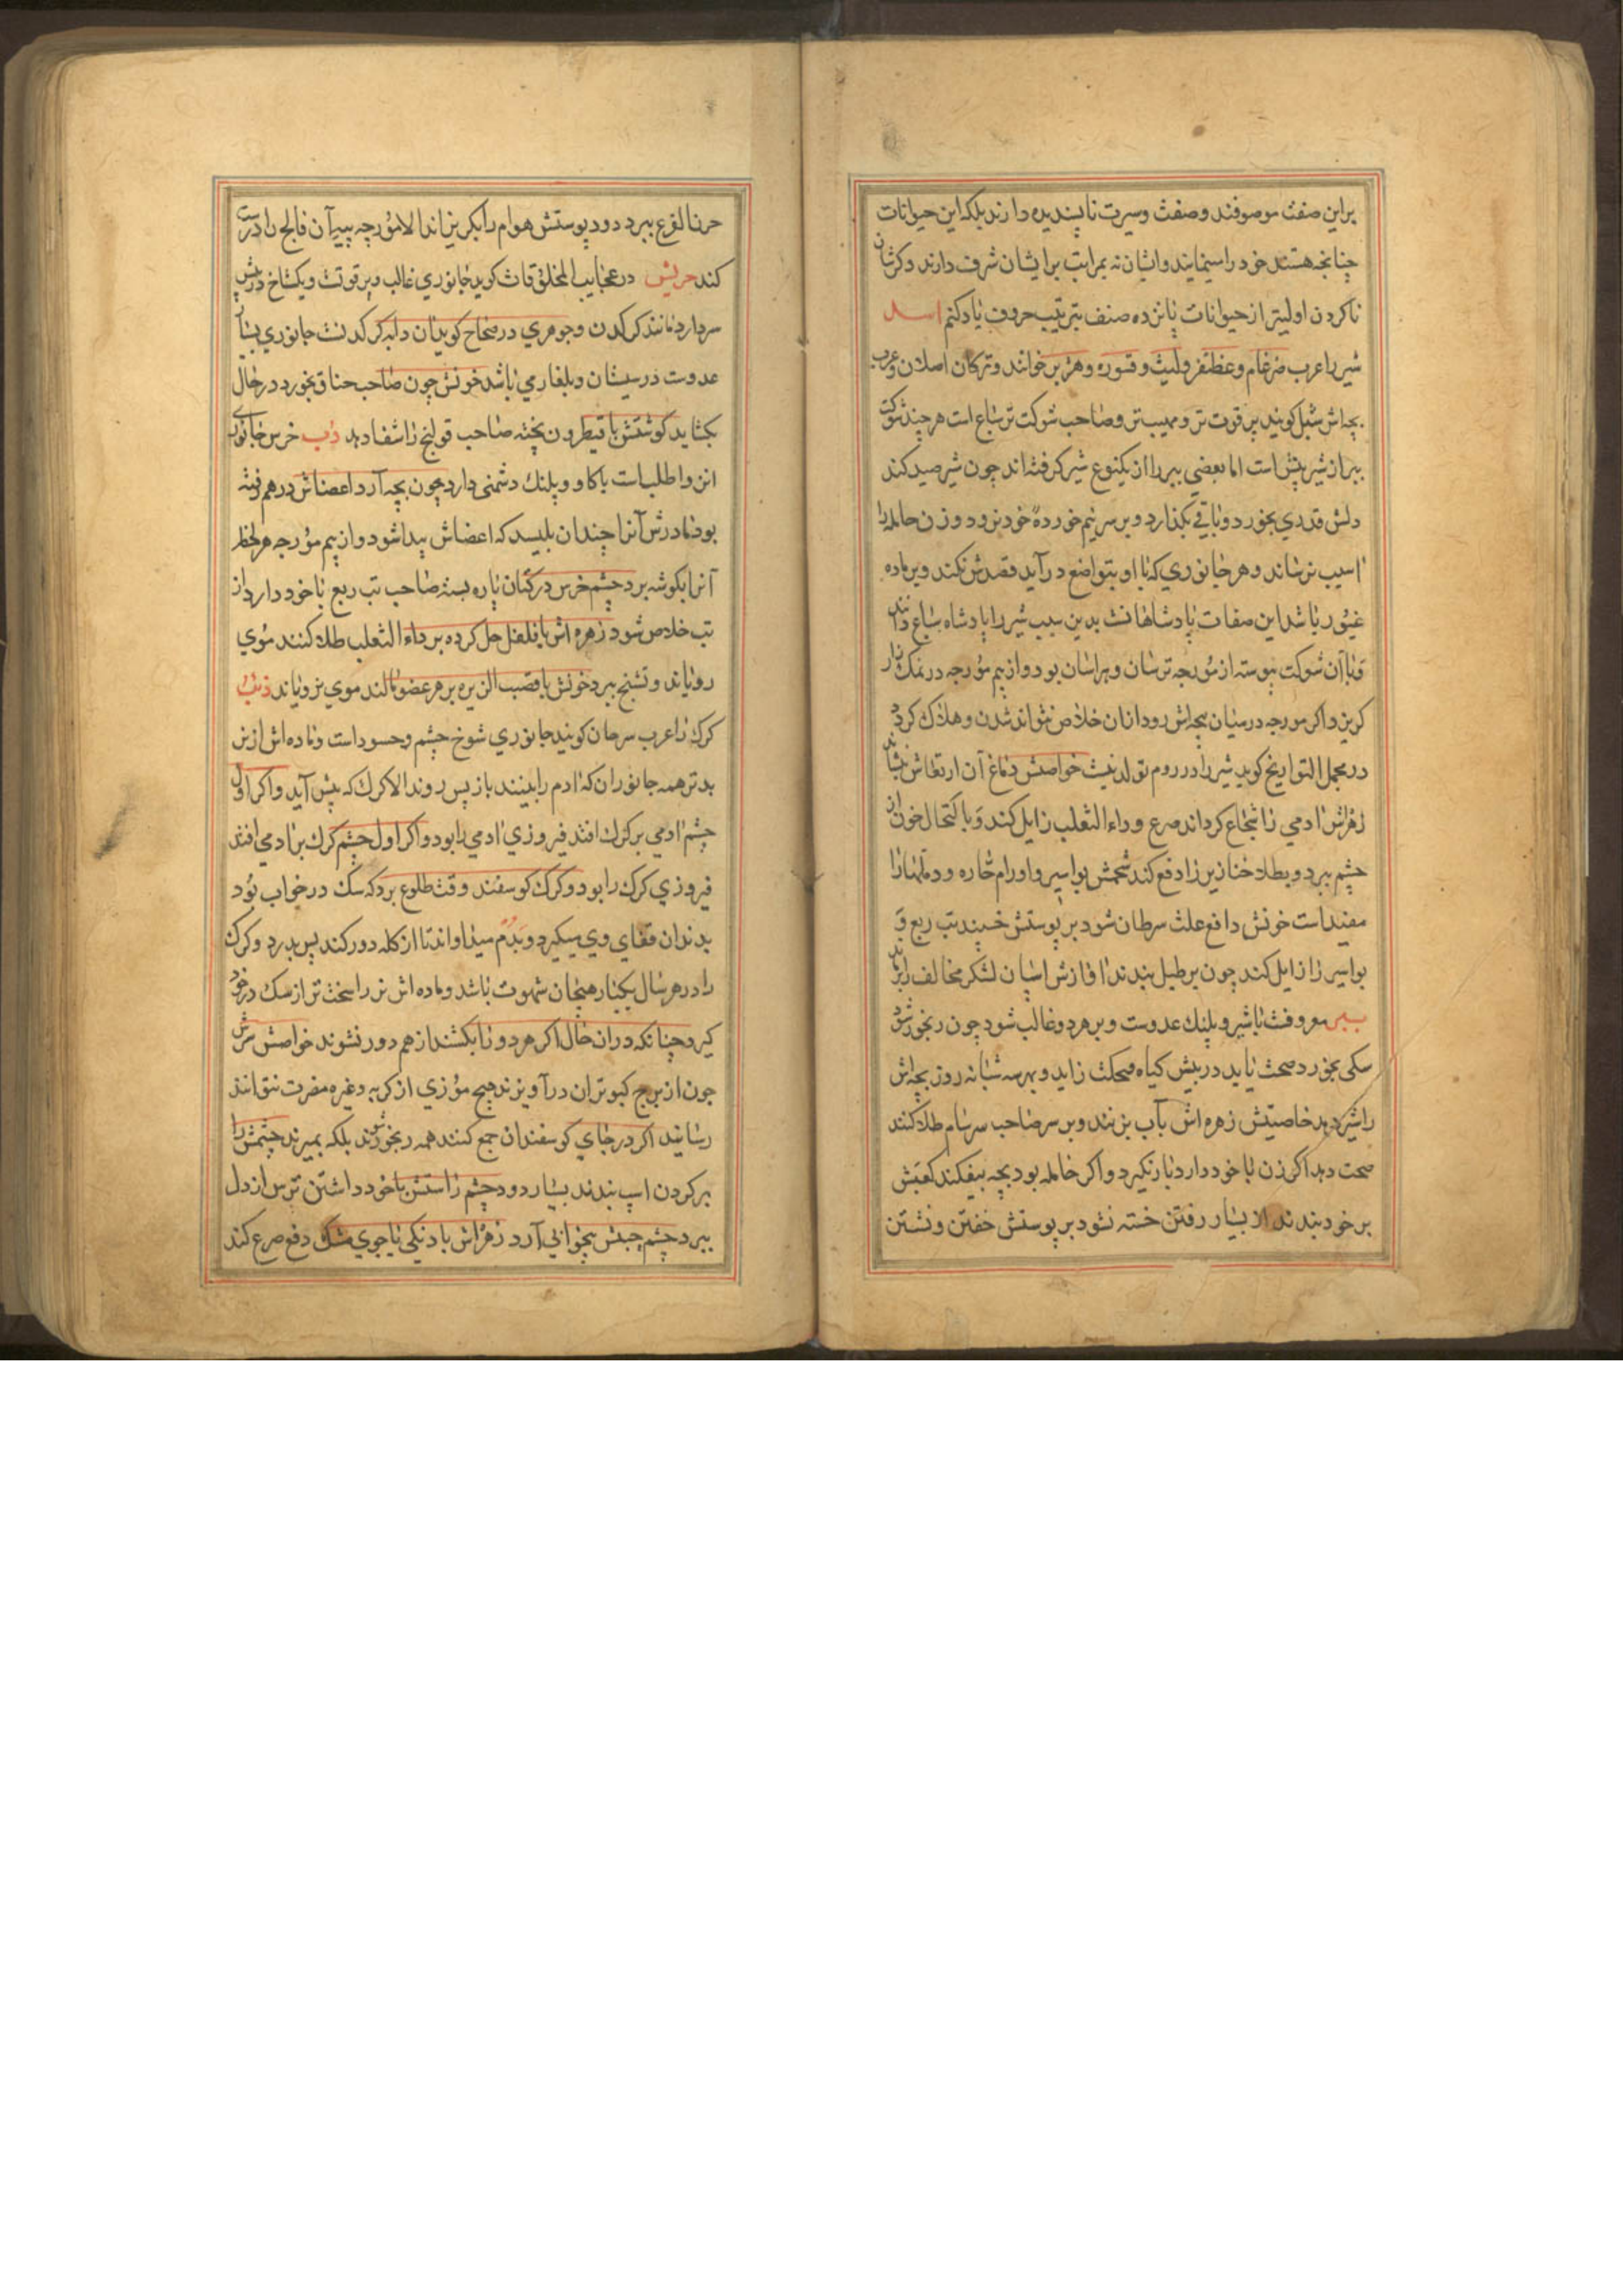 براین صفت موصوفند وصفت وسیرت ناپسندیده دارند بلکه این حیوانات
چنانچه هستند خود را سینمایند وایشان نه بمراتب برایشان شرف دارند ذکرشان
ناکردن اولیتر از حیوانات پانزده صنف بترتیب حروف یاد کنم اسد
شیر را عرب ضرغام وغظنفر ولیث وقسوره وهزبر خوانند وترکان اصلان وعرب
بچه‌اش شبل کویند پر قوت تر ومهیب تر وصاحب شوکت تر سباع است هرچند شوکت
ببر از شیر بیش است اما بعضی ببر را از یکنوع شیر کرفته اند چون شیر صید کند
دلش قدری بخورد وباقی بکذارد وبر سر نیم خورده خود نرود وزن حامله را
اسیب نرساند وهر جانوری که با او بتواضع درآید قصدش نکند وبر ماده
غیور باشد این صفات پادشاهانست بدین سبب شیر را پادشاه سباع دانند
وباآن شوکت پیوسته از مورچه ترسان وهراسان بود واز بیم مورچه در نمک زار
کریزد واکر مورچه درمیان بچه‌اش رود ازان خلاص نتواند شدن وهلاک کردد
در مجمل التواریخ کوید شیر را در روم تولد نیست خواصش دماغ آن ارتعاش بنشاند
زهراش ادمی را شجاع کرداند صرع وداء الثعلب زایل کند وباکتحال خون از
چشم ببرد وبطلاء خنازیر را دفع کند شحمش بواسیر واورام حاره ودملها را
مفید است خونش دافع علت سرطان شود بر پوستش خسپند تب ربع و
بواسیر را زایل کند چون بر طبل بندند اوازش اسپان لشکر مخالف را برماند
ببر معروفست باشیر وپلنك عدوست وبر هردو غالب شود چون رنجور شود
سکی بخورد صحت یابد دربیش کیاه زاید وبهر سه شبانه روز بچه‌اش
را شیر دهد خاصیتش زهره اش بآب بزنند وبر سر صاحب سرسام طلا کنند
صحت دهد اکر زن با خود دارد بار نکیرد واکر حامله بود بچه بیفکند کعبش
بر خود بندند از بسیار رفتن خسته نشود بر پوستش خفتن ونشستن
حرنا لقرع ببرد دود پوستش هوام را بکریزاند الا مورچه پیه آن فالج را درست
کند حریش در عجایب المخلوقات کوید جانوری غالب وپر قوتست ویکشاخ در پیش
سر دارد مانند کرکدن وجوهری در صحاح کوید آن دابه کرکدنست جانوری
عدوست در سیستان وبلغار می باشد خونش چون صاحب خناق بخورد درحال
بکشاید کوشتش با قیطرون پخته صاحب قولنج را شفا دهد دب خرس جانوری
انزوا طلب است با کاو وپلنك دشمنی دارد چون بچه آرد اعضاش درهم رفته
بود مادرش آنرا چندان بلیسد که اعضاش پیدا شود واز بیم مورچه هر لحظه
آنرا بکوشه برد چشم خرس در کتان پاره بسته صاحب تب ربع با خود دارد از
تب خلاص شود زهره اش با فلفل حل کرده بر داء الثعلب طلا کنند موی
رویاند وتشنج ببرد خونش بر هر عضو مالند موی برویاند ذئب
کرك را عرب سرحان کویند جانوری شوخ چشم وحسود است وماده اش از نر
بدتر همه جانوران که ادم را بینند باز پس روند الا کرك که پیش آید واکر اول
چشم ادمی بر کرك افتد فیروزی ادمی را بود واکر اول چشم کرك بر ادمی افتد
فیروزی کرك را بود وکرك کوسفند وقت طلوع برد که سک در خواب بود
بدندان قفای وی میکیرد وبدم میراند تا از کله دور کند پس بدرد وکرك
را در هر سال یکبار هیجان شهوت باشد وماده اش نر را سخت تر از سک درخود
کیرد چنانکه در ان حال اکر هردو را بکشند از هم دور نشوند خواصش سرش
چون از برج کبوتران درآویزند هیچ موذی از کربه وغیره مضرت نتوانند
رسانید اکر در جای کوسفندان جمع کنند همه رنجور شوند بلکه بمیرند چشمش را
بر کردن اسپ بندند بسیار دود چشم راستش با خود داشتن ترس از دل
ببرد چشم چپش بیخوابی آرد زهراش با دنکی یا جوی مشک دفع صرع کند